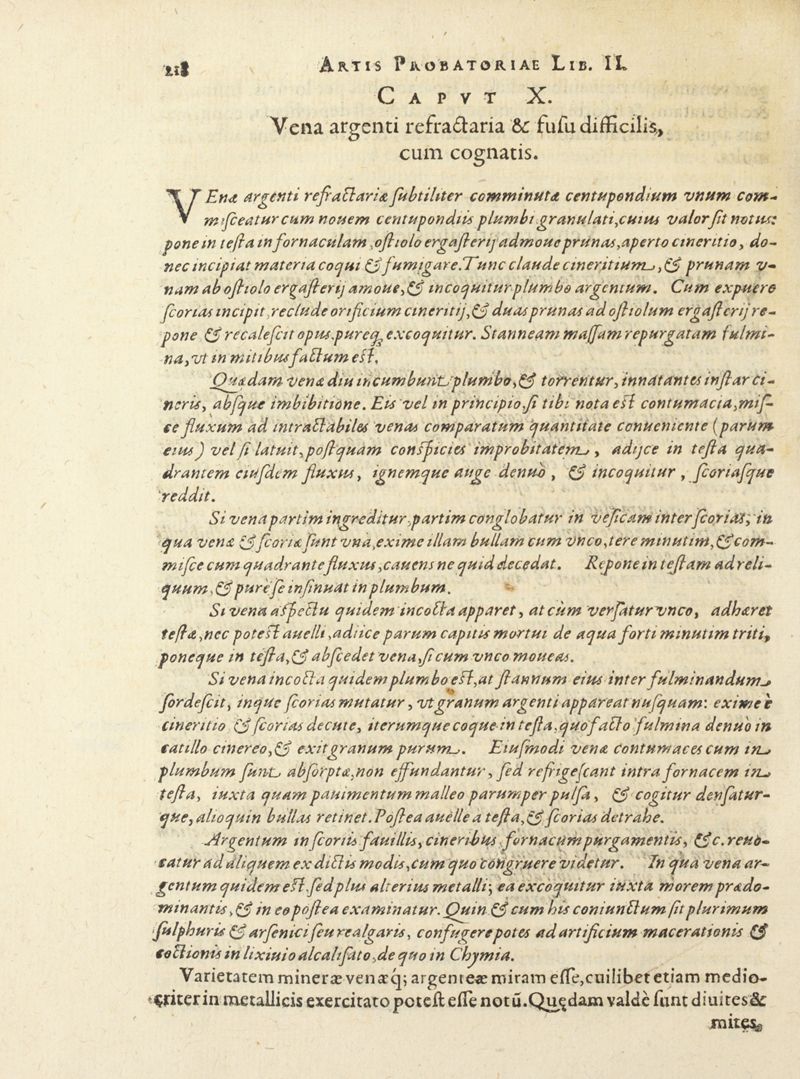 218 ARTIS PROBATORIAE LIB. II.
CAPVT X.
Vena argenti refractaria & fuſu difficilis,
cum cognatis.
VEnæ argenti refractariæ ſubtiliter comminutæ centupondium vnum com-
miſceatur cum nouem centupondiis plumbi granulati, cuius valor ſit notus:
pone in teſta in fornaculam, oſtiolo ergaſterij admoue prunas, aperto cineritio, do-
nec incipiat materia coqui & fumigare. Tunc claude cineritium, & prunam v-
nam ab oſtiolo ergaſterij amoue, & incoquitur plumbo argentum. Cum expuere
ſcorias incipit, reclude orificium cineritij, & duas prunas ad oſtiolum ergaſterij re-
pone & recaleſcit opus, pureq́; excoquitur. Stanneam maſſam repurgatam fulmi-
na, vt in mitibus factum eſt.
Quædam venæ diu incumbunt plumbo, & torrentur, innatantes inſtar ci-
neris, abſque imbibitione. Eis vel in principio, ſi tibi nota eſt contumacia, miſ-
ce fluxum ad intractabiles venas comparatum quantitate conueniente (parum
eius) vel ſi latuit, poſtquam conſpicies improbitatem, adijce in teſta qua-
drantem eiuſdem fluxus, ignemque auge denuò, & incoquitur, ſcoriaſque
reddit.
Si vena partim ingreditur, partim conglobatur in veſicam inter ſcorias, in
qua vena & ſcoriæ ſunt vnà, exime illam bullam cum vnco, tere minutim, & com-
miſce cum quadrante fluxus, cauens ne quid decedat. Repone in teſtam ad reli-
quum, & purè ſe inſinuat in plumbum.
Si vena aſpectu quidem incocta apparet, at cùm verſatur vnco, adhæret
teſtæ, nec poteſt auelli, adiice parum capitis mortui de aqua forti minutim triti,
poneque in teſta, & abſcedet vena, ſi cum vnco moueas.
Si vena incocta quidem plumbo eſt, at ſtannum eius inter fulminandum
ſordeſcit, inque ſcorias mutatur, vt granum argenti appareat nuſquam: exime è
cineritio & ſcorias decute, iterumque coque in teſta, quo facto fulmina denuò in
catillo cinereo, & exit granum purum. Eiuſmodi venæ contumaces cum in
plumbum ſunt abſorptæ, non effundantur, ſed refrigeſcant intra fornacem in
teſta, iuxta quam pauimentum malleo parumper pulſa, & cogitur denſatur-
que, alioquin bullas retinet. Poſtea auelle à teſta, & ſcorias detrahe.
Argentum in ſcoriis fauillis, cineribus, fornacum purgamentis, &c. reuo-
catur ad aliquem ex dictis modis, cum quo congruere videtur. In qua vena ar-
gentum quidem eſt, ſed plus alterius metalli; ea excoquitur iuxta morem prædo-
minantis, & in eo poſtea examinatur. Quin & cum his coniunctum ſit plurimum
ſulphuris & arſenici ſeu realgaris, confugere potes ad artificium macerationis &
coctionis in lixiuio alcaliſato, de quo in Chymia.
Varietatem mineræ venæq́; argenteæ miram eſſe, cuilibet etiam medio-
criter in metallicis exercitato poteſt eſſe notũ. Quędam valdè ſunt diuites &
mites,